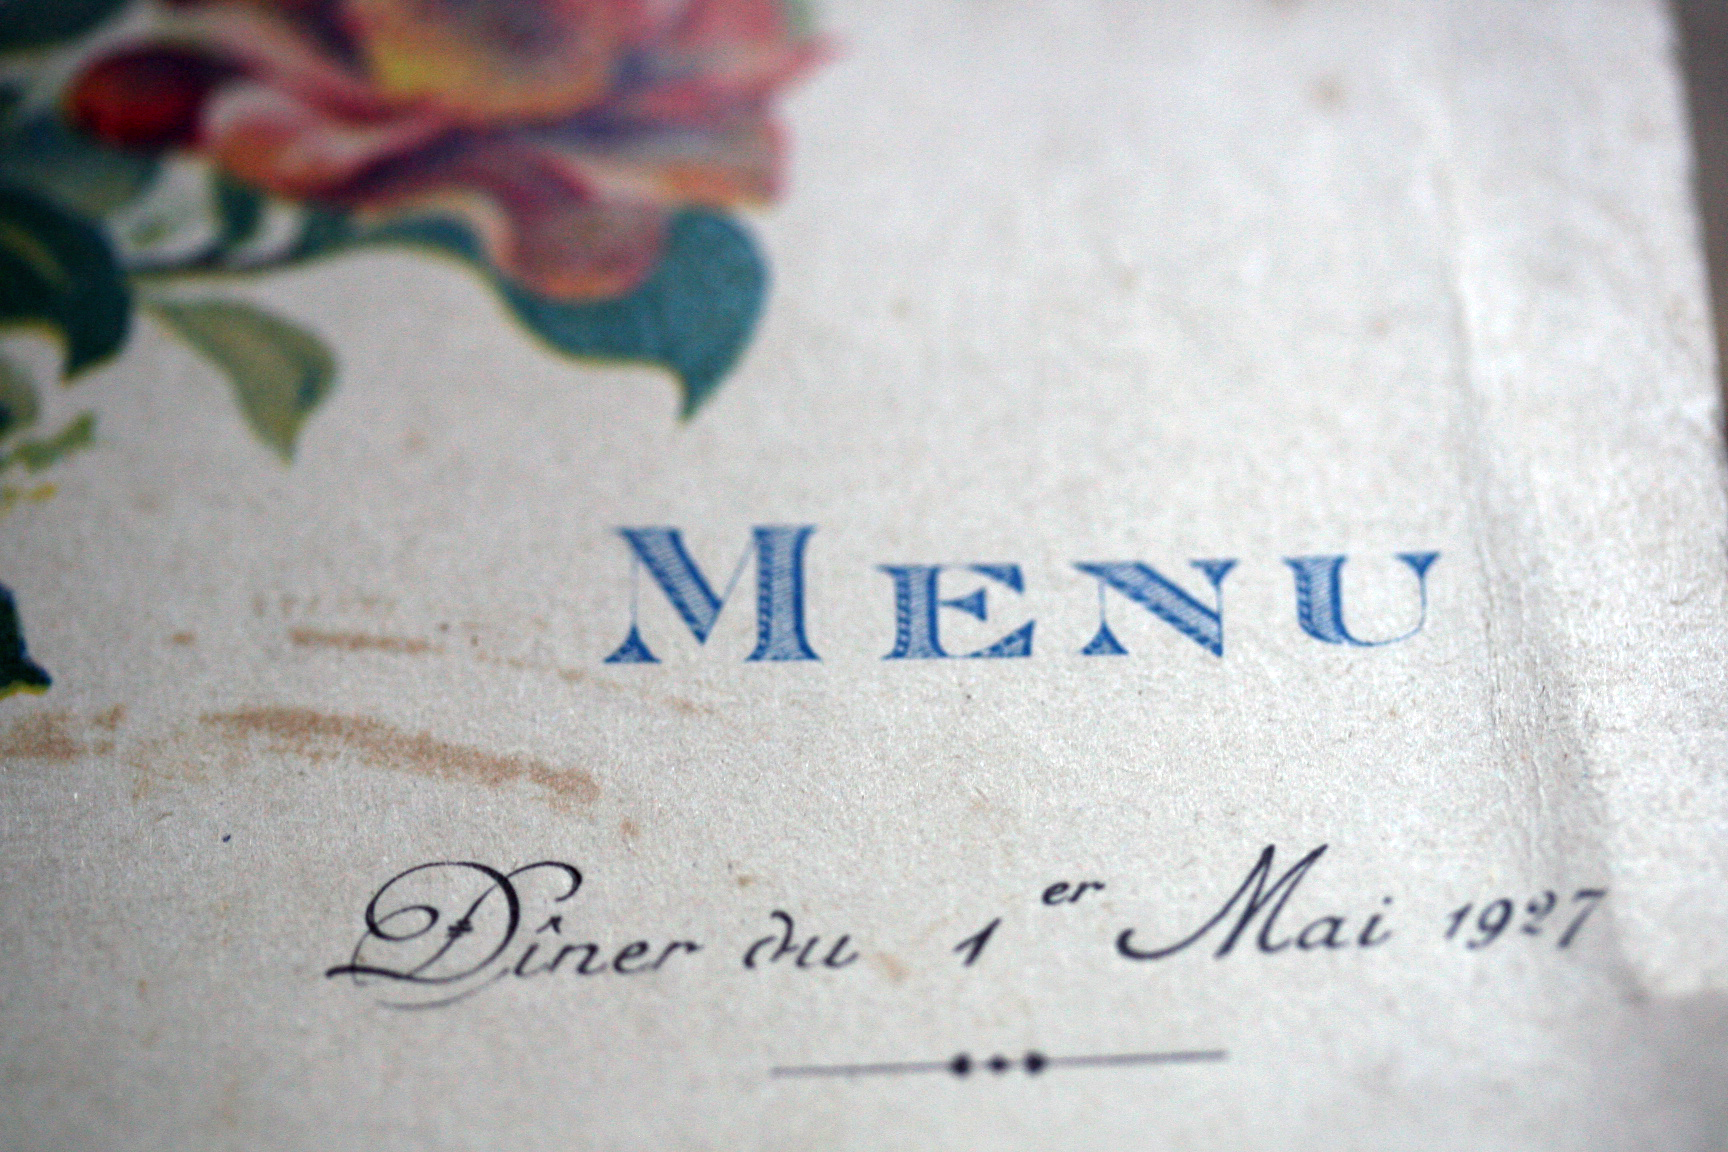 MENU
Dîner du 1er Mai 1927